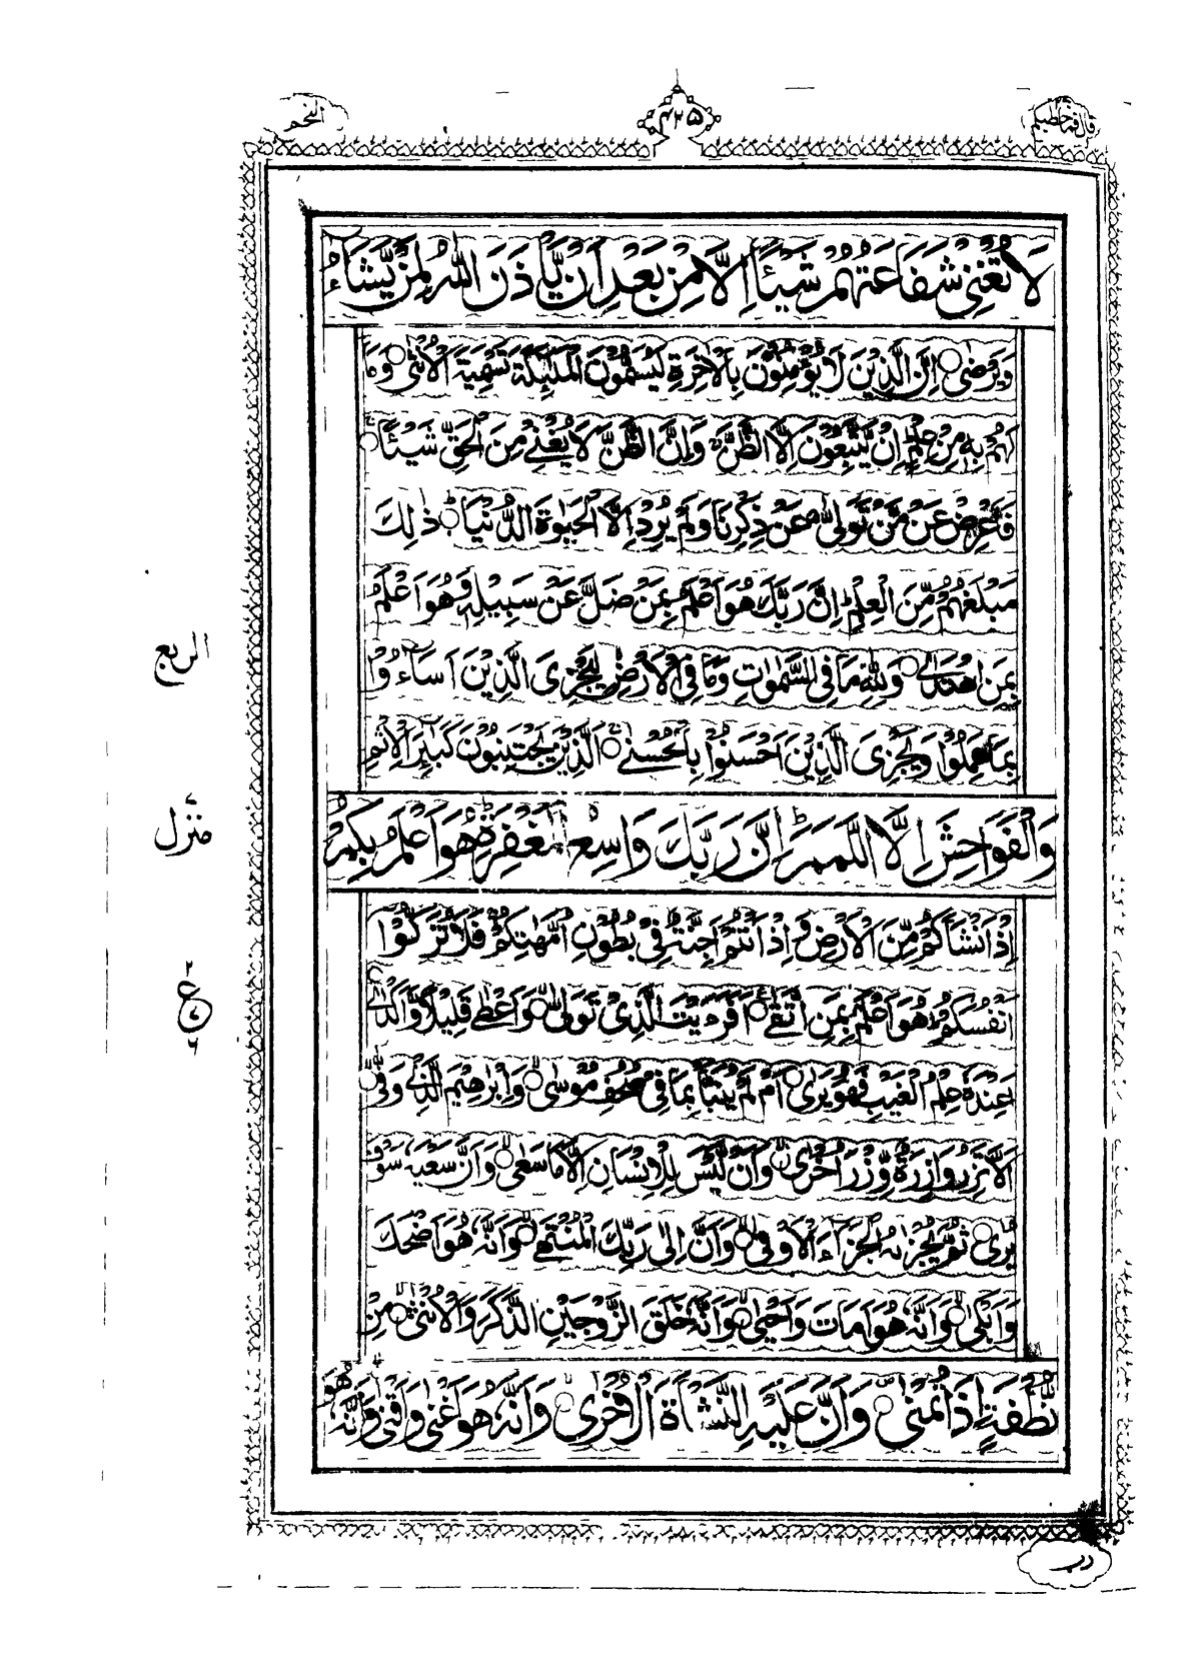 قال فما خطبكم
۴۲۵
النجم
لَا تُغْنِیْ شَفَاعَتُهُمْ شَیْئًا اِلَّا مِنْۢ بَعْدِ اَنْ یَّاْذَنَ اللّٰهُ لِمَنْ یَّشَآءُ
وَیَرْضٰی ○ اِنَّ الَّذِیْنَ لَا یُؤْمِنُوْنَ بِالْاٰخِرَةِ لَیُسَمُّوْنَ الْمَلٰٓئِكَةَ تَسْمِیَةَ الْاُنْثٰی ○ وَمَا
لَهُمْ بِهٖ مِنْ عِلْمٍ ؕ اِنْ یَّتَّبِعُوْنَ اِلَّا الظَّنَّ ۚ وَاِنَّ الظَّنَّ لَا یُغْنِیْ مِنَ الْحَقِّ شَیْـًٔا ○
فَاَعْرِضْ عَنْ مَّنْ تَوَلّٰی ۙ۬ عَنْ ذِكْرِنَا وَلَمْ یُرِدْ اِلَّا الْحَیٰوةَ الدُّنْیَا ○ ذٰلِكَ
مَبْلَغُهُمْ مِّنَ الْعِلْمِ ؕ اِنَّ رَبَّكَ هُوَ اَعْلَمُ بِمَنْ ضَلَّ عَنْ سَبِیْلِهٖ وَهُوَ اَعْلَمُ
بِمَنِ اهْتَدٰی ○ وَلِلّٰهِ مَا فِی السَّمٰوٰتِ وَمَا فِی الْاَرْضِ لِیَجْزِیَ الَّذِیْنَ اَسَآءُوْا
بِمَا عَمِلُوْا وَیَجْزِیَ الَّذِیْنَ اَحْسَنُوْا بِالْحُسْنٰی ○ اَلَّذِیْنَ یَجْتَنِبُوْنَ كَبٰٓئِرَ الْاِثْمِ
وَالْفَوَاحِشَ اِلَّا اللَّمَمَ ؕ اِنَّ رَبَّكَ وَاسِعُ الْمَغْفِرَةِ ؕ هُوَ اَعْلَمُ بِكُمْ
اِذْ اَنْشَاَكُمْ مِّنَ الْاَرْضِ وَاِذْ اَنْتُمْ اَجِنَّةٌ فِیْ بُطُوْنِ اُمَّهٰتِكُمْ ۚ فَلَا تُزَكُّوْۤا
اَنْفُسَكُمْ ؕ هُوَ اَعْلَمُ بِمَنِ اتَّقٰی ○ اَفَرَءَیْتَ الَّذِیْ تَوَلّٰی ○ وَاَعْطٰی قَلِیْلًا وَّاَكْدٰی ○ اَ
عِنْدَهٗ عِلْمُ الْغَیْبِ فَهُوَ یَرٰی ○ اَمْ لَمْ یُنَبَّاْ بِمَا فِیْ صُحُفِ مُوْسٰی ○ وَاِبْرٰهِیْمَ الَّذِیْ وَفّٰی ○
اَلَّا تَزِرُ وَازِرَةٌ وِّزْرَ اُخْرٰی ○ وَاَنْ لَّیْسَ لِلْاِنْسَانِ اِلَّا مَا سَعٰی ○ وَاَنَّ سَعْیَهٗ سَوْفَ
یُرٰی ○ ثُمَّ یُجْزٰىهُ الْجَزَآءَ الْاَوْفٰی ○ وَاَنَّ اِلٰی رَبِّكَ الْمُنْتَهٰی ○ وَاَنَّهٗ هُوَ اَضْحَكَ
وَاَبْكٰی ○ وَاَنَّهٗ هُوَ اَمَاتَ وَاَحْیٰی ○ وَاَنَّهٗ خَلَقَ الزَّوْجَیْنِ الذَّكَرَ وَالْاُنْثٰی ○ مِنْ
نُّطْفَةٍ اِذَا تُمْنٰی ○ وَاَنَّ عَلَیْهِ النَّشْاَةَ الْاُخْرٰی ○ وَاَنَّهٗ هُوَ اَغْنٰی وَاَقْنٰی ○ وَاَنَّهٗ هُوَ
الربع
منزل
ع
رب